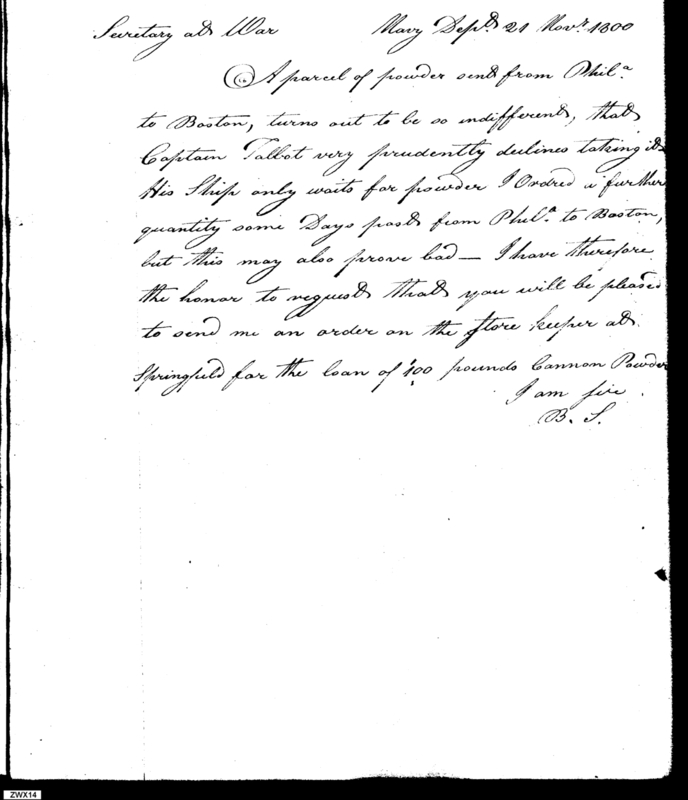 Secretary at War Navy Dept. 21 Novr. 1800
A parcel of powder sent from Phila.
to Boston, turns out to be so indifferent, that
Captain Talbot very prudently declines taking it
His Ship only waits for powder I Ordred a further
quantity some Days past from Phila. to Boston,
but this may also prove bad — I have therefore
the honor to request that you will be pleased
to send me an order on the Store keeper at
Springfield for the loan of 400 pounds Cannon Powder
I am sir
B. S.
ZWX14